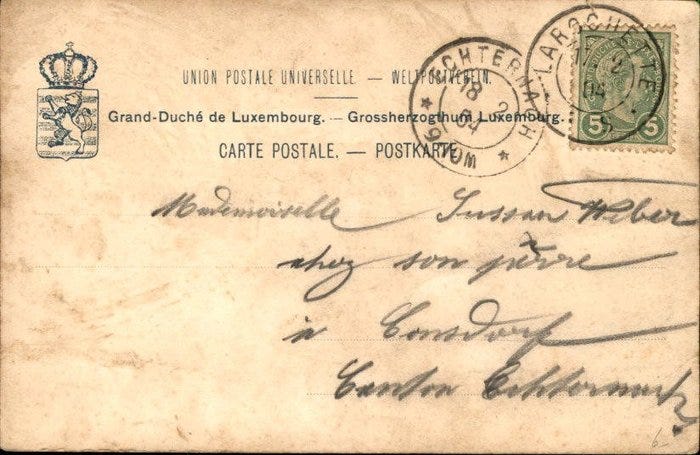 UNION POSTALE UNIVERSELLE. — WELTPOSTVEREIN.
Grand-Duché de Luxembourg. — Grossherzogthum Luxemburg.
CARTE POSTALE. — POSTKARTE
ECHTERNACH
18 2
04
LAROCHETTE
17 2
04
5 5
Mademoiselle Sussan Weber
chez son père
à Consdorf
Canton Echternach